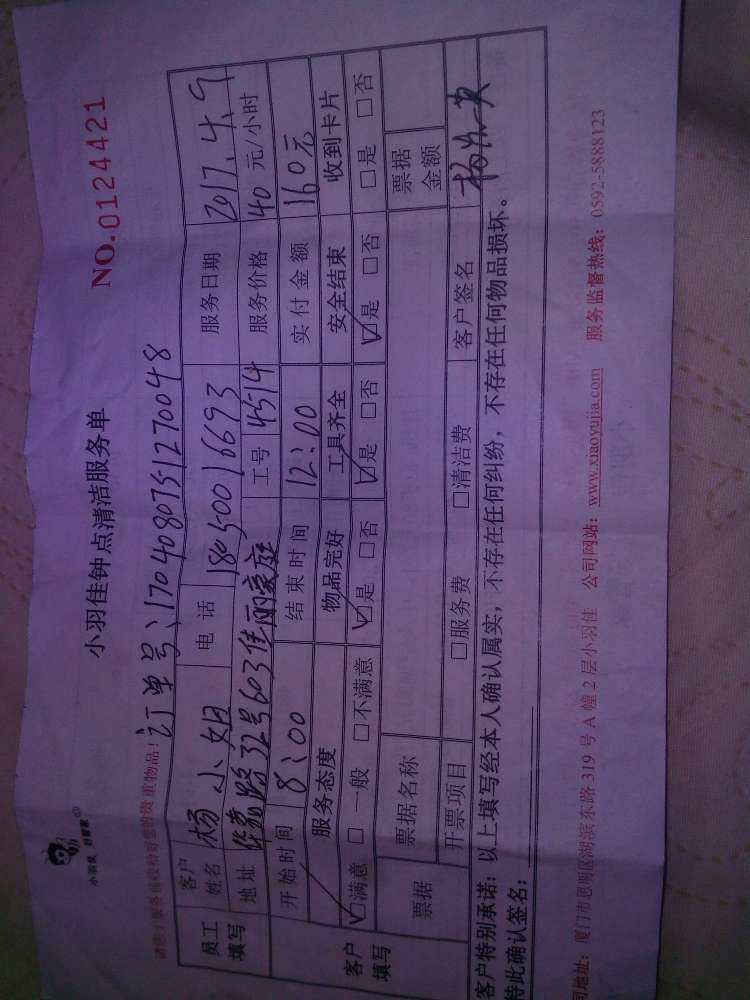 小羽佳 好管家
小羽佳钟点清洁服务单
NO.0124421
请您于服务前收拾好您的贵重物品!
订单号:1704080751270048
员工填写
客户姓名 杨小姐 电话 18050016693 服务日期 2017.4.9
地址 32号603佳丽豪庭 工号 4514 服务价格 40元/小时
开始时间 8:00 结束时间 12:00 实付金额 160元
客户填写
服务态度 物品完好 工具齐全 安全结束 收到卡片
☑满意 □一般 □不满意 ☑是 □否 ☑是 □否 ☑是 □否 □是 □否
票据 票据名称 票据金额
开票项目 □服务费 □清洁费 客户签名
客户特别承诺:以上填写经本人确认属实,不存在任何纠纷,不存在任何物品损坏。
特此确认签名:
司地址:厦门市思明区湖滨东路319号A幢2层小羽佳 公司网站:www.xiaoyujia.com 服务监督热线:0592-5888123